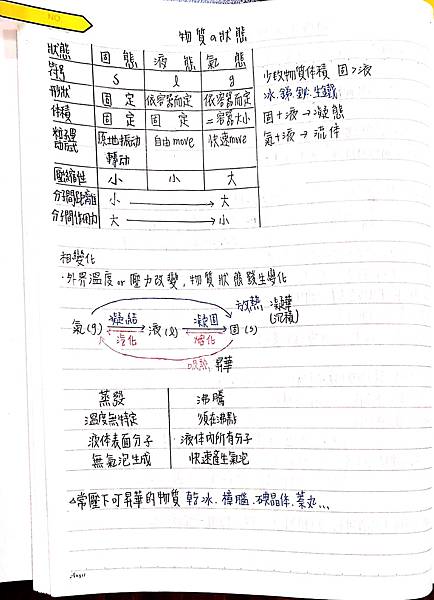 NO
物質の狀態
狀態 固態 液態 氣態
符號 S l g
形狀 固定 依容器而定 依容器而定
体積 固定 固定 =容器大小
粒子運動方式 原地振動 轉動 自由move 快速move
壓縮性 小 小 大
分子間距離 小 → 大
分子間作用力 大 → 小
少數物質体積 固>液
冰.銻.鉍.生鐵
固+液→凝態
氣+液→流体
相變化
·外界溫度 or 壓力改變,物質狀態發生變化
放熱, 凝華
(沉積)
凝結 凝固
氣(g) 液(l) 固(s)
汽化 熔化
吸熱, 昇華
蒸發 沸騰
溫度無特定 須在沸點
液体表面分子 液体內所有分子
無氣泡生成 快速產生氣泡
△常壓下可昇華的物質 乾冰.樟腦.碘晶体.萘丸...